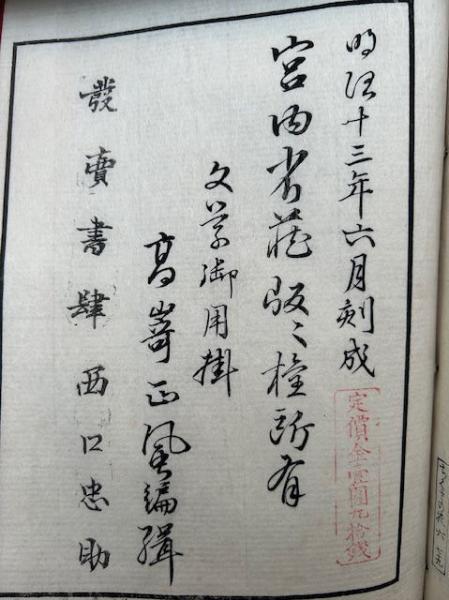 明治十三年六月刻成
定價金壹圓九拾錢
宮内省蔵版々權所有
文学御用掛
髙崎正風編輯
發賣書肆西口忠助